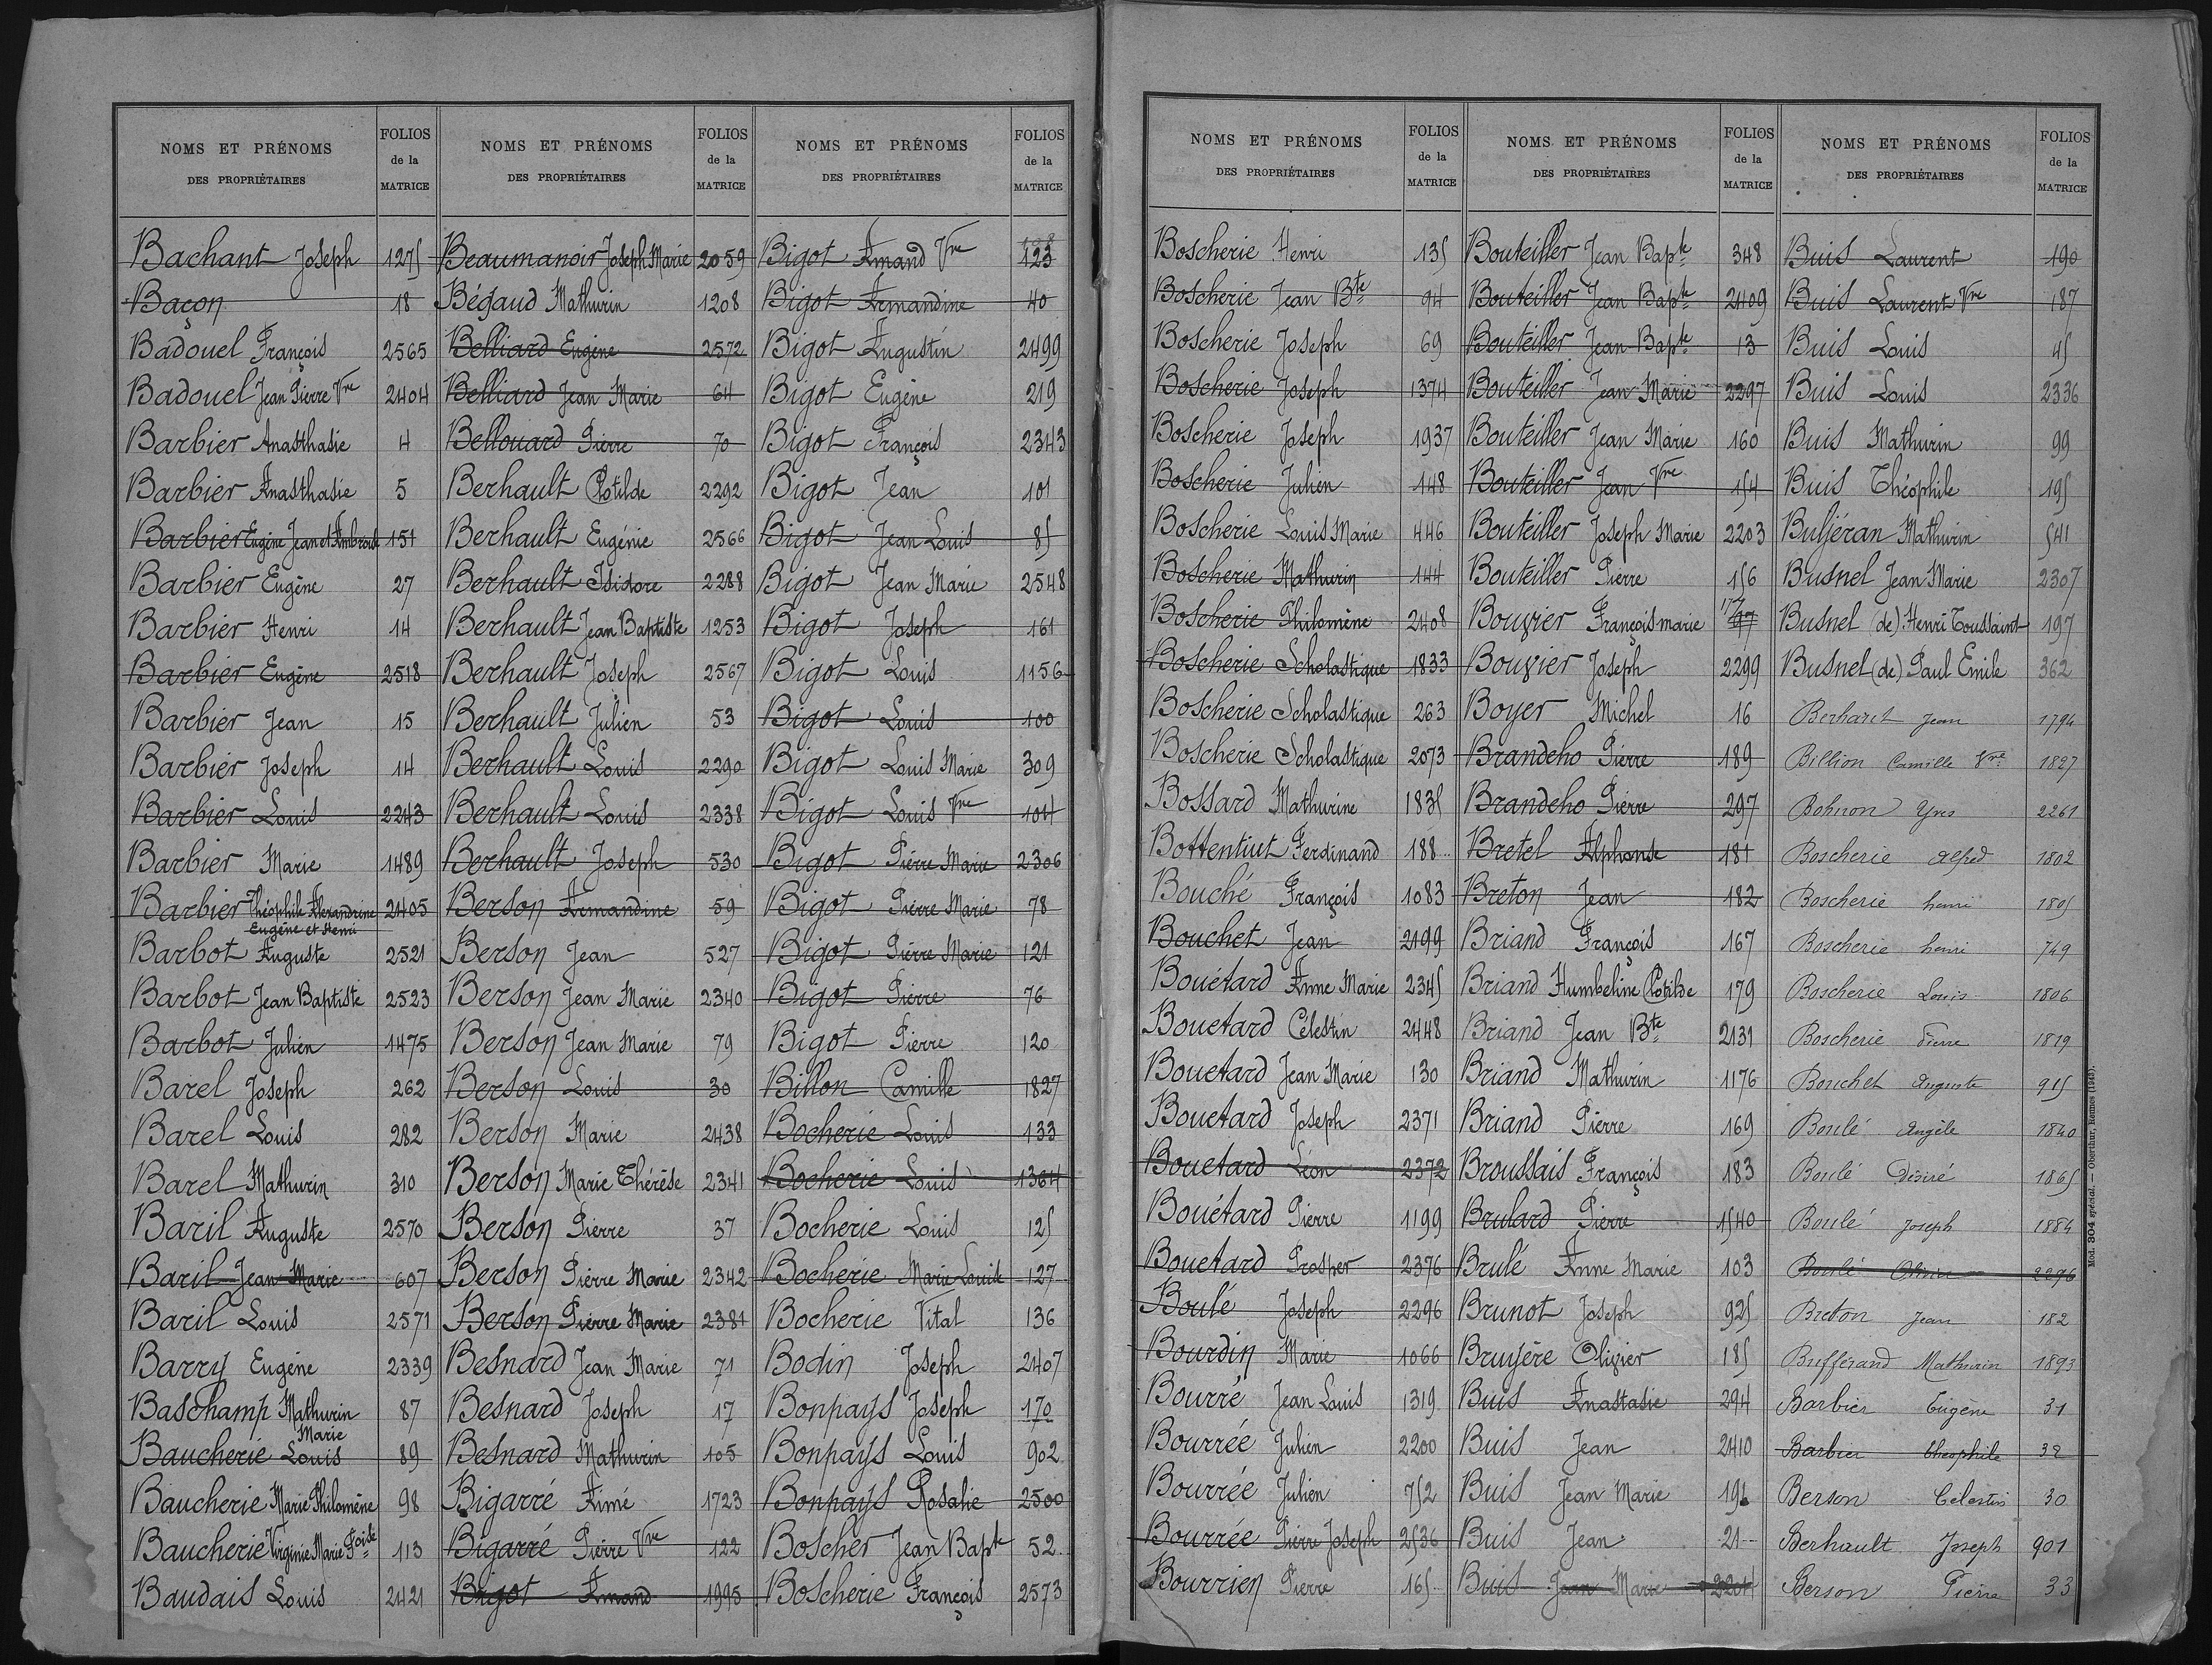 NOMS ET PRÉNOMS
DES PROPRIÉTAIRES
FOLIOS
de la
MATRICE
Bachant Joseph 1275
Baçon 18
Badouel François 2565
Badouel Jean Pierre Vve 2404
Barbier Anasthasie 4
Barbier Anasthasie 5
Barbier Eugène Jean et Ambroise 151
Barbier Eugène 27
Barbier Henri 14
Barbier Eugène 2518
Barbier Jean 15
Barbier Joseph 14
Barbier Louis 2243
Barbier Marie 1489
Barbier Théophile Alexandrine 2405
Eugène et Henri
Barbot Auguste 2521
Barbot Jean Baptiste 2523
Barbot Julien 1475
Barel Joseph 262
Barel Louis 282
Barel Mathurin 310
Baril Auguste 2570
Baril Jean Marie 607
Baril Louis 2571
Barry Eugène 2339
Baschamp Mathurin 87
Marie
Baucherie Louis 89
Baucherie Marie Philomène 98
Baucherie Virginie Marie Foise 113
Baudais Louis 2421
NOMS ET PRÉNOMS
DES PROPRIÉTAIRES
FOLIOS
de la
MATRICE
Beaumanoir Joseph Marie 2059
Bégaud Mathurin 1208
Belliard Eugène 2572
Belliard Jean Marie 64
Bellouard Pierre 70
Berhault Clotilde 2292
Berhault Eugénie 2566
Berhault Isidore 2288
Berhault Jean Baptiste 1253
Berhault Joseph 2567
Berhault Julien 53
Berhault Louis 2290
Berhault Louis 2338
Berhault Joseph 530
Berson Armandine 59
Berson Jean 527
Berson Jean Marie 2340
Berson Jean Marie 79
Berson Louis 30
Berson Marie 2438
Berson Marie Thérèse 2341
Berson Pierre 37
Berson Pierre Marie 2342
Berson Pierre Marie 2381
Besnard Jean Marie 71
Besnard Joseph 17
Besnard Mathurin 105
Bigarré Aimé 1723
Bigarré Pierre Vve 122
Bigot Amand 1995
NOMS ET PRÉNOMS
DES PROPRIÉTAIRES
FOLIOS
de la
MATRICE
Bigot Amand Vve 123
Bigot Armandine 40
Bigot Augustin 2499
Bigot Eugène 219
Bigot François 2343
Bigot Jean 101
Bigot Jean Louis 85
Bigot Jean Marie 2548
Bigot Joseph 161
Bigot Louis 1156
Bigot Louis 100
Bigot Louis Marie 309
Bigot Louis Vve 104
Bigot Pierre Marie 2306
Bigot Pierre Marie 78
Bigot Pierre Marie 121
Bigot Pierre 76
Bigot Pierre 120
Billon Camille 1827
Bocherie Louis 133
Bocherie Louis 1364
Bocherie Louis 125
Bocherie Marie Louise 127
Bocherie Vital 136
Bodin Joseph 2407
Bonpays Joseph 170
Bonpays Louis 902
Bonpays Rosalie 2500
Boscher Jean Bapte 52
Boscherie François 2573
NOMS ET PRÉNOMS
DES PROPRIÉTAIRES
FOLIOS
de la
MATRICE
Boscherie Henri 135
Boscherie Jean Bte 94
Boscherie Joseph 69
Boscherie Joseph 1374
Boscherie Joseph 1937
Boscherie Julien 148
Boscherie Louis Marie 446
Boscherie Mathurin 144
Boscherie Philomène 2408
Boscherie Scholastique 1833
Boscherie Scholastique 263
Boscherie Scholastique 2073
Bossard Mathurine 1835
Bottentiut Ferdinand 188
Bouché François 1083
Bouchet Jean 2199
Bouétard Anne Marie 2345
Bouetard Célestin 2448
Bouetard Jean Marie 130
Bouetard Joseph 2371
Bouetard Léon 2372
Bouétard Pierre 1199
Bouetard Prosper 2376
Boulé Joseph 2296
Bourdin Marie 1066
Bourré Jean Louis 1319
Bourrée Julien 2200
Bourrée Julien 752
Bourrée Pierre Joseph 2536
Bourrien Pierre 165
NOMS ET PRÉNOMS
DES PROPRIÉTAIRES
FOLIOS
de la
MATRICE
Bouteiller Jean Bapte 348
Bouteiller Jean Bapte 2409
Bouteiller Jean Bapte 13
Bouteiller Jean Marie 2297
Bouteiller Jean Marie 160
Bouteiller Jean Vve 154
Bouteiller Joseph Marie 2203
Bouteiller Pierre 156
Bouvier François marie
Bouvier Joseph 2299
Boyer Michel 16
Brandeho Pierre 189
Brandeho Pierre 297
Bretel Alphonse 181
Breton Jean 182
Briand François 167
Briand Humbeline Clotilde 179
Briand Jean Bte 2131
Briand Mathurin 1176
Briand Pierre 169
Broussais François 183
Brulard Pierre 1540
Brulé Anne Marie 103
Brunot Joseph 925
Bruyère Olivier 185
Buis Anastasie 294
Buis Jean 2410
Buis Jean Marie 194
Buis Jean 21
Buis Jean Marie 2204
NOMS ET PRÉNOMS
DES PROPRIÉTAIRES
FOLIOS
de la
MATRICE
Buis Laurent 190
Buis Laurent Vve 187
Buis Louis 45
Buis Louis 2336
Buis Mathurin 99
Buis Théophile 195
Bufféran Mathurin 541
Busnel Jean Marie 2307
Busnel (de) Henri Toussaint 197
Busnel (de) Paul Emile 362
Berhault Jean 1794
Billion Camille Vve 1827
Bohuon Yves 2261
Boscherie Alfred 1802
Boscherie henri 1805
Boscherie henri 749
Boscherie Louis 1806
Boscherie Pierre 1819
Bouchet Auguste 915
Boulé Angèle 1840
Boulé Désiré 1865
Boulé Joseph 1884
Boulé Olivier 2296
Breton Jean 182
Bufférand Mathurin 1893
Barbier Eugène 31
Barbier théophile 32
Berson Célestin 30
Berhault Joseph 901
Berson Pierre 33
Mod. 304 spécial. — Oberthur, Rennes (1943).